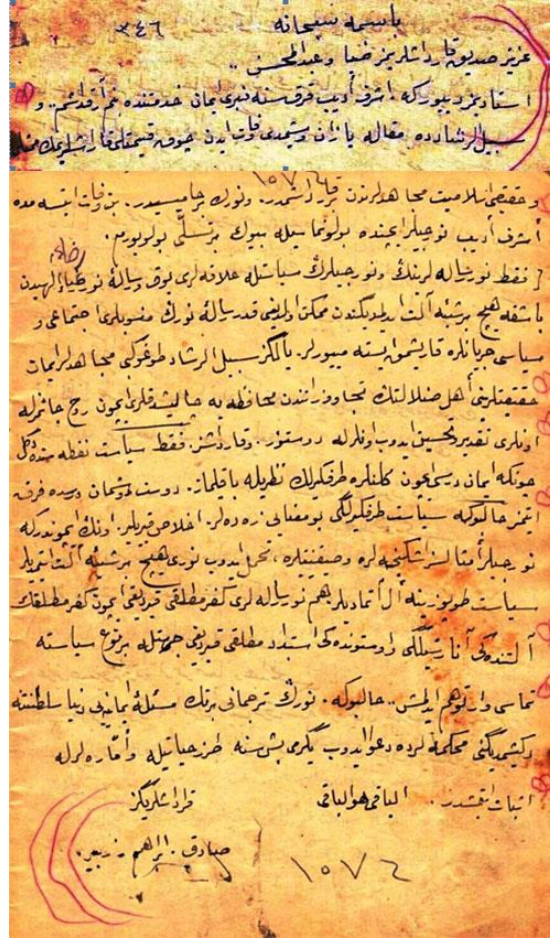 باسمه سبحانه
٣٤٦
عزيز صديق قارداشلريمز ضيا و عبدالمحسن ،،
استادمز دييوركه اشرف أديب قرق سنه نبرى ايمان خدمتنده بنم آرقداشم .. و
سبيل الرشادده مقاله يازان و شيمدى وفات ايدن چوق قيمتلى قارداشلريمك
١٠٧٦
و حقيقى اسلاميت مجاهدلرندن قرداشمدر. و نورك حاميسيدر. بن وفات ايتسه مده
اشرف أديب نورجيلر ايچنده بولونماسيله بيوك بر تسلّى بولويورم.
[ فقط نور رساله لرينك و نورجيلرك سياستله علاقه لرى يوق و رسالۀ نور رضاء الهيدن
باشقه هيچ بر شيئه آلت ايديلمديكندن ممكن اولديغى قدر رسالۀ نورك منسوبلرى اجتماعى و
سياسى جريانلره قاريشمق ايسته مييورلر. يالكز سبيل الرشاد طوغو كبى مجاهدلر ايمان
حقيقتلرينى أهل ضلالتك تجاوزاتندن محافظه يه چاليشدقلرى ايچون روح و جانمزله
اونلرى تقدير و تحسين ايدوب اونلرله دوستز. و قارداشز. فقط سياست نقطه سنده دگل
چونكه ايمان درسى ايچون كلنلره طرفگيرلك نظريله باقيلماز. دوست دوشمان درسده فرق
ايتمز. حالبوكه سياست طرفگيرلگى بو معنايى زده لر. اخلاص قيريلير. اونك ايچوندركه
نورجيلر أمثالسز اشكنجه لره و صيقينتيلره تحمل ايدوب نورى هيچ بر شيئه آلت ايتمديلر
سياست طوپوزينه أل آتماديلر. هم نور رساله لرى كفر مطلقى قيرديغى ايچون كفر مطلقك
آلتنده كى آنارشيلگى و اوستنده كى استبداد مطلقى قيرديغى جهتله بر نوع سياسته
تماسى وار توهم ايديلمش .. حالبوكه. نورك ترجمانى بر تك مسئلۀ ايمانيه يى دنيا سلطنتنه
دگيشمديگنى محكمه لرده دعوا ايدوب يگرمى بش سنه طرز حياتيله و أماره لرله
اثبات ايتمشدر. الباقى هو الباقى
قرداشلريگز
صادق. ابراهيم. زبير.
١٠٧٦